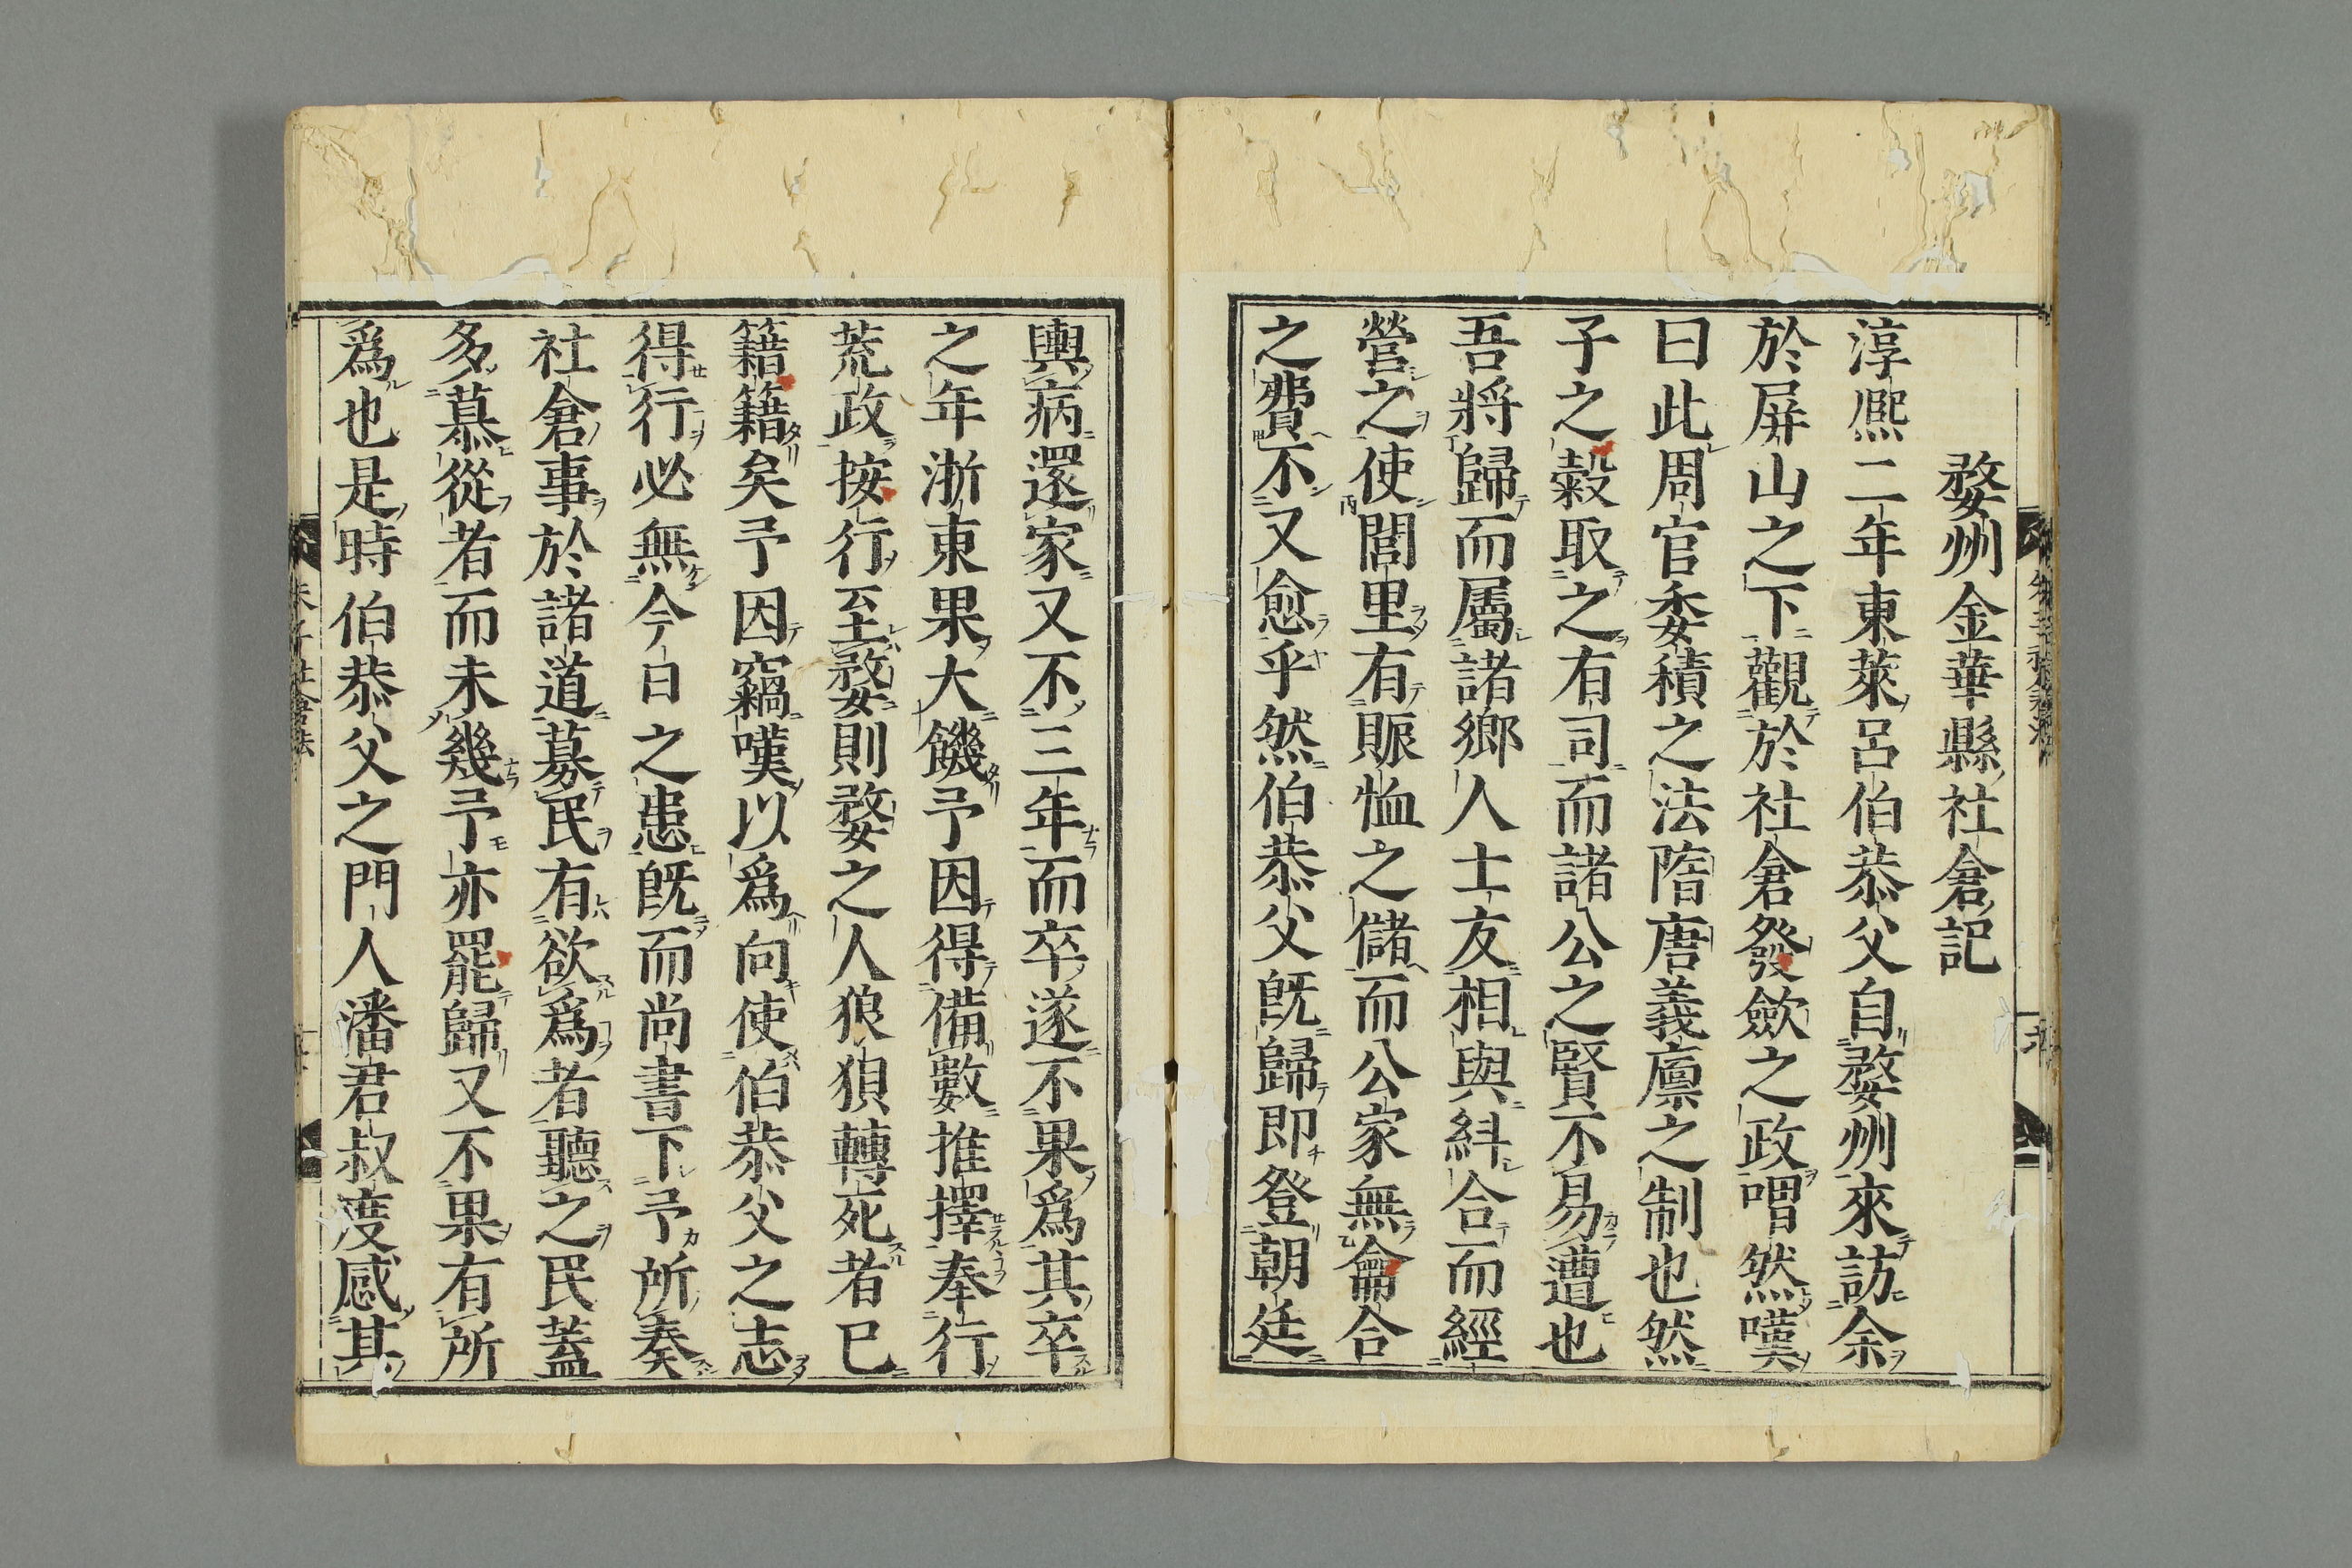 婺州金華縣社倉記
淳熈二年東萊呂伯恭父自婺州來訪余
於屏山之下觀於社倉發斂之政喟然嘆
曰此周官委積之法隋唐義廩之制也然
子之穀取之有司而諸公之賢不易遭也
吾將歸而屬諸鄉人士友相與糾合而經
營之使閭里有賑恤之儲而公家無龠合
之費不又愈乎然伯恭父既歸即登朝廷
輿病還家又不三年而卒遂不果爲其卒
之年浙東果大饑予因得備數推擇奉行
荒政按行至婺則婺之人狼狽轉死者已
籍籍矣予因竊嘆以爲向使伯恭父之志
得行必無今日之患既而尚書下予所奏
社倉事於諸道募民有欲爲者聽之民蓋
多慕從者而未幾予亦罷歸又不果有所
爲也是時伯恭父之門人潘君叔度感其
朱子社倉法